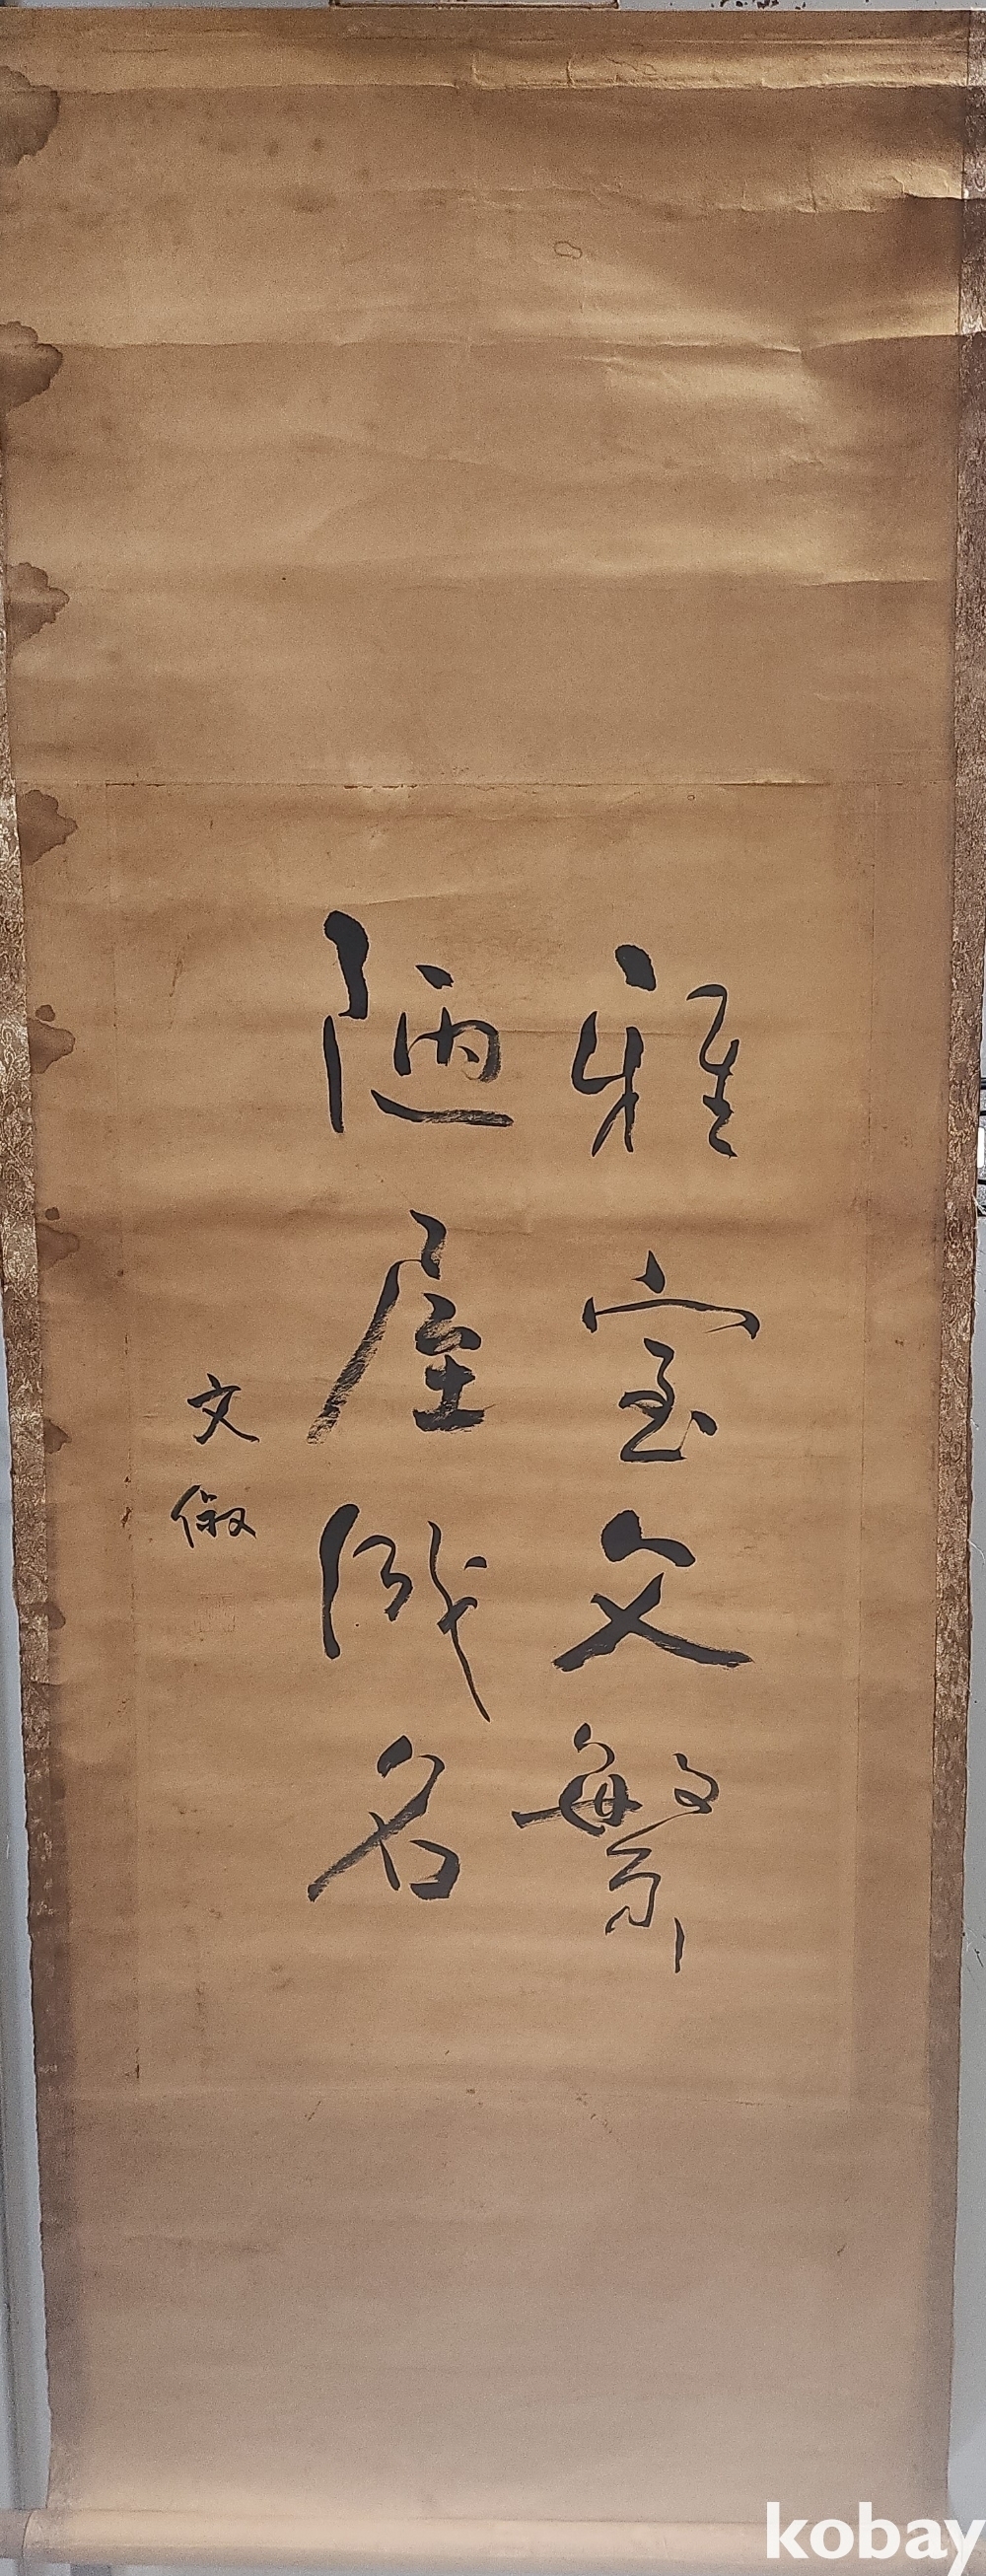 雅室文繁
陋屋滅名
文俶
kobay